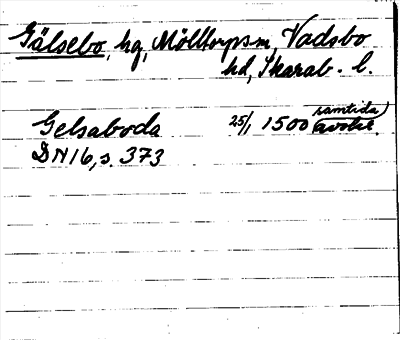 Gälsebo, hg, Mölltorps sn, Vadsbo
hd, Skarab. l.
Gelsaboda 25/1 1500 samtida avskr.
DN 16, s. 373